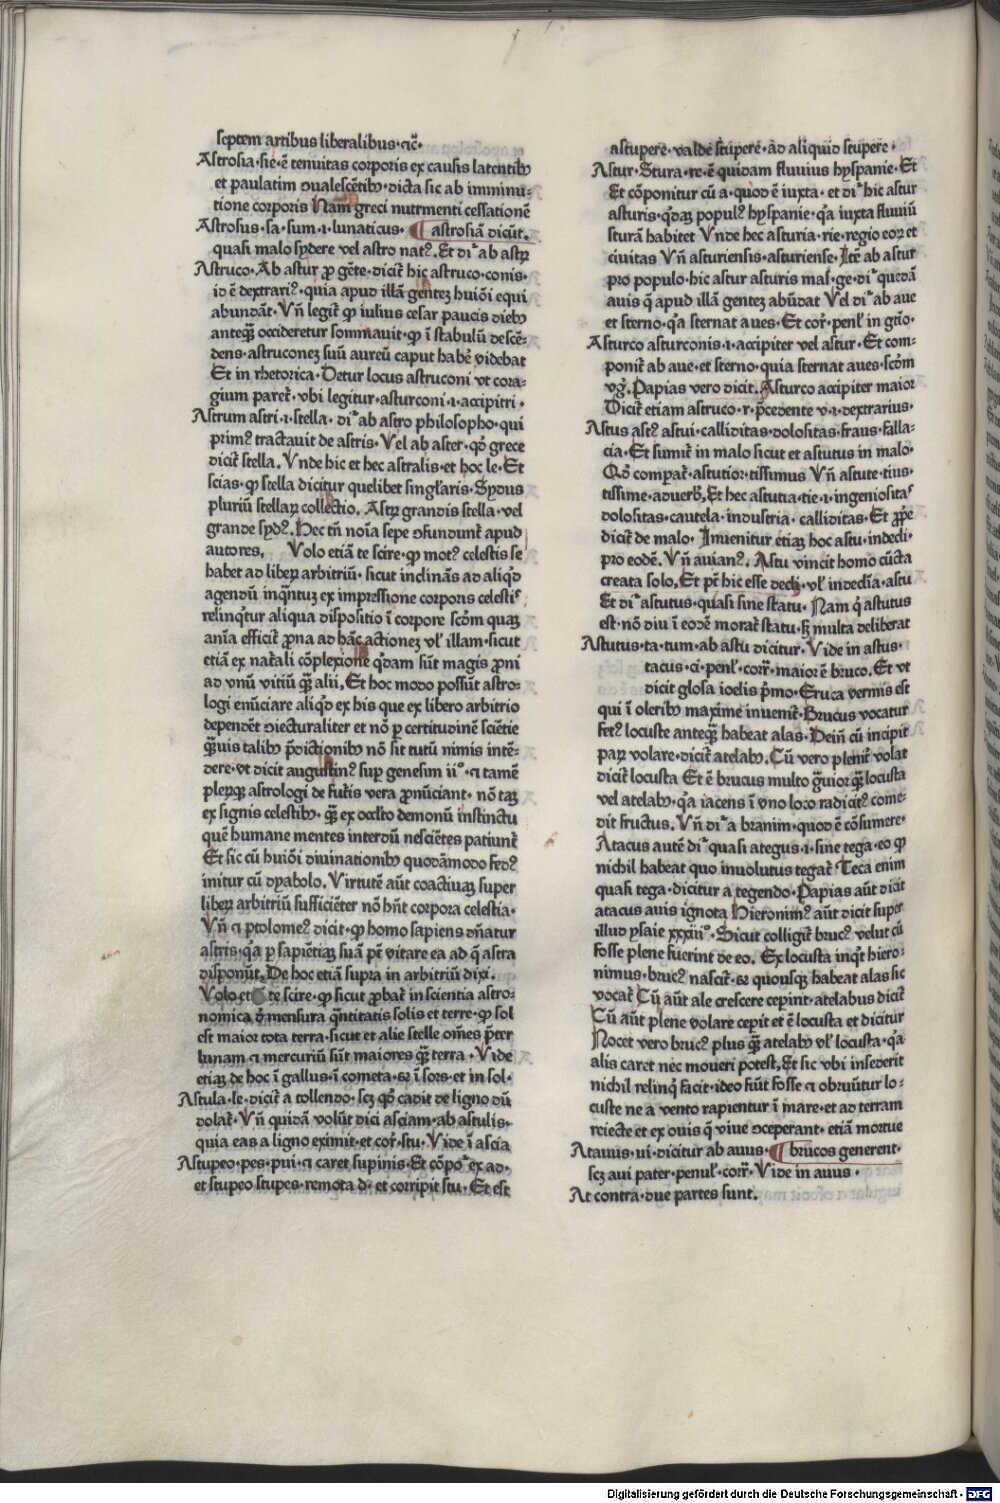 septem artibus liberalibus·⁊c̄·
Astrosia·sie·ē tenuitas corporis ex causis latentibꝫ
et paulatim ↄualescētibꝫ·dicta sic ab imminu⸗
tione corporis Nam greci nutrmenti cessationē
Astrosus·sa·sum·i·lunaticus· ¶ astrosiā dicūt.
quasi malo sydere vel astro natꝰ. Et di᷑ ab astꝝ
Astruco· Ab astur ꝓ gēte·dicit᷑ hic astruco·conis·
id ē dextrariꝰ·quia apud illā gentez huiōi equi
abundāt· Vñ legit᷑ ꝙ iulius cesar paucis diebꝫ
anteqꝫ̄ occideretur somniauit·ꝙ ī stabulū descē⸗
dens·astruconez suū aureū caput habē videbat
Et in rhetorica·Detur locus astruconi vt cora⸗
gium paret᷑·vbi legitur·asturconi·i·accipitri·
Astrum astri·i·stella· di᷑ ab astro philosopho·qui
primꝰ tractauit de astris· Vel ab aster·qd̓ grece
dicit᷑ stella. Vnde hic et hec astralis·et hoc le·Et
scias·ꝙ stella dicitur quelibet singl̓aris·Sydus
pluriū stellaꝝ collectio. Astꝝ grandis stella·vel
grande sydꝰ. Hec tñ noīa sepe ↄfundunt᷑ apud
autores. Volo etiā te scire·ꝙ motꝰ celestis se
habet ad liberꝝ arbitriū·sicut inclinās ad aliqd̓
agendū inqꝫ̄tuz ex impressione corporis celestis
relinqt᷑ur aliqua dispositio ī corpore scd̓m quaꝫ
anīa efficit᷑ ꝓna ad hāc actionez vl̓ illam·sicut
etiā ex nat᷑ali cōplexione qd̓am sūt magis ꝓni
ad vnū vitiū qꝫ̄ alii, Et hoc modo possūt astro⸗
logi enūciare aliqd̓ ex his que ex libero arbitrio
dependēt ↄiecturaliter et nō ꝑ certitudinē sciētie
qꝫ̄uis talibꝫ p̄dictionibꝫ nō sit tutū nimis intē⸗
dere·vt dicit augustinꝰ suꝑ genesim iiº·⁊ tamē
pleꝝqꝫ astrologi de fut᷑is vera ꝓnūciant· nō taꝫ
ex signis celestibꝫ· qꝫ̄ ex occl̓to demonū instinctu
quē humane mentes interdū nesciētes patiunt᷑
Et sic cū huiōi diuinationibꝫ quodāmodo fedꝰ
initur cū dyabolo. Virtutē aūt coactiuaꝫ super
liberꝝ arbitriū sufficiēter nō hñt corpora celestia·
Vñ ⁊ ptolomeꝰ dicit·ꝙ homo sapiens dñatur
astris·qꝛ ꝑ sapiētiaꝫ suā pt̄ vitare ea ad q̄ astra
disponūt. De hoc etiā supra in arbitriū dixi.
Volo et te scire·ꝙ sicut ꝓbat᷑ in scientia astro⸗
nomica d̓ mensura qꝫ̄titatis solis et terre·ꝙ sol
est maior tota terra·sicut et alie stelle om̄es p̄ter
lunam ⁊ mercuriū sūt maiores qꝫ̄ terra· Vide
etiaꝫ de hoc ī gallus·ī cometa·⁊ ī sors·et in sol·
Astula·le·dicit᷑ a tollendo·scꝫ qꝛ cadit de ligno dū
dolat᷑· Vñ quidā volūt dici asciam·ab astulis·
quia eas a ligno eximit·et cor̄·stu· Vide ī ascia
Astupeo·pes·pui·⁊ caret supinis·Et cōpo᷑ ex ad·
et stupeo stupes·remota d·et corripit stu·Et est
astupere·valde stupere·ad aliquid stupere·
Astur·Stura·re·ē quidam fluuius hyspanie·Et
Et cōponitur cū a·quod ē iuxta·et di᷑ hic astur
asturis·qd̓aꝫ populꝰ hyspanie·qꝛ iuxta fluuiū
sturā habitet Vnde hec asturia·rie·regio eoꝝ et
ciuitas Vñ asturiensis·asturiense·Itē ab astur
pro populo·hic astur asturis mas·ge·di᷑ quedā
auis q̄ apud illā gentez abūdat Vel di᷑ ab aue
et sterno·qꝛ sternat aues·Et cor̄·penl̓ in gt̄io·
Asturco asturconis·i·accipiter vel astur·Et com⸗
ponit᷑ ab aue·et sterno·quia sternat aues·scd̓m
vg̓. Papias vero dicit. Asturco accipiter maior
Dicit᷑ etiam astruco·r·p̄cedente v·i·dextrarius·
Astus astꝰ astui·calliditas·dolositas·fraus·falla⸗
cia·Et sumit᷑ in malo sicut et astutus in malo·
Qd̓ comparat᷑·astutior·tissimus Vñ astute·tius·
tissime·aduerb̓, Et hec astutia·tie·i·ingeniositas
dolositas·cautela·industria·calliditas·Et ꝓpe
dicit᷑ de malo· Inuenitur etiaꝫ hoc astu·indecli·
pro eodē. Vñ auianꝰ. Astu vincit homo cūcta
creata solo, Et pt̄ hic esse decli·vl̓ indecl̓ia·astu
Et di᷑ astutus·quasi sine statu· Nam qꝛ astutus
est·nō diu ī eodē morat᷑ statu·sꝫ multa deliberat
Astutus·ta·tum·ab astu dicitur· Vide in astus·
tacus·ci·penl̓·corr̄·maior ē bruco. Et vt
dicit glosa ioelis p̄mo·Eruca vermis est
qui ī oleribꝫ maxime inuenit᷑·Brucus vocatur
fetꝰ locuste anteqꝫ̄ habeat alas·Dein̄ cū incipit
paꝝ volare·dicit᷑ atelabꝫ. Cū vero plenit᷑ volat
dicit᷑ locusta Et ē brucus multo gͣuior qꝫ̄ locusta
vel atelabꝫ·qꝛ iacens ī vno loco radicitꝰ come⸗
dit fructus. Vñ di᷑ a branim·quod ē cōsumere·
Atacus autē di᷑ quasi ategus·i·sine tega·eo ꝙ
nichil habeat quo inuolutus tegat᷑ Teca enim
quasi tega·dicitur a tegendo·Papias aūt dicit
atacus auis ignota Hieronimꝰ aūt dicit super
illud ysaie xxxiiiº·Sicut colligit᷑ brucꝰ velut cū
fosse plene fuerint de eo. Ex locusta inqt̄ hiero⸗
nimus·brucꝰ nascit᷑·⁊ quousqꝫ habeat alas sic
vocat᷑ Cū aūt ale crescere cepint·atelabus dicit᷑
Cū aūt plene volare cepit et ē locusta et dicitur
Nocet vero brucꝰ plus qꝫ̄ atelabꝫ vl̓ locusta·qꝛ
alis caret nec moueri potest, Et sic vbi insederit
nichil relinqͥ facit·ideo fiūt fosse ⁊ obruūtur lo⸗
custe ne a vento rapientur ī mare·et ad terram
reiecte et ex ouis q̄ viue ↄceperant·etiā mortue
Atauus·ui·dicitur ab auus· ¶ brucos generent·
scꝫ aui pater·penul̓·corr̄· Vide in auus·
At contra·due partes sunt.
Digitalisierung gefördert durch die Deutsche Forschungsgemeinschaft - DFG